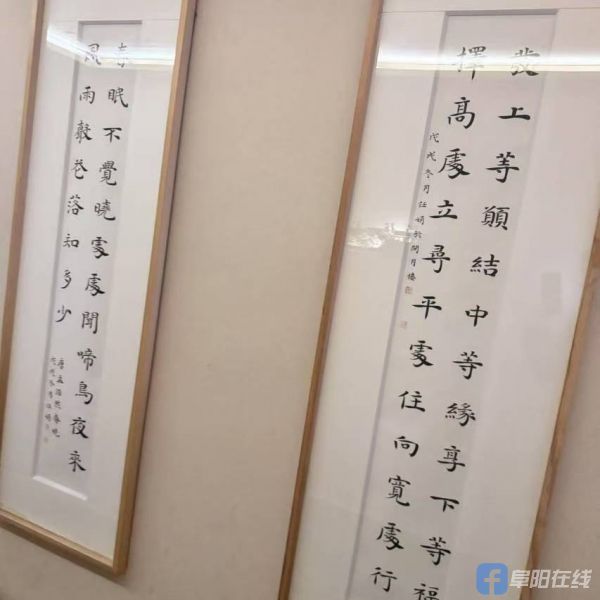 發上等願結中等緣享下等福
擇高處立尋平處住向寬處行
戊戌冬月任娟於月樓
春眠不覺曉處處聞啼鳥夜來
風雨聲花落知多少
唐孟浩然春曉
戊戌冬任娟
阜阳在线